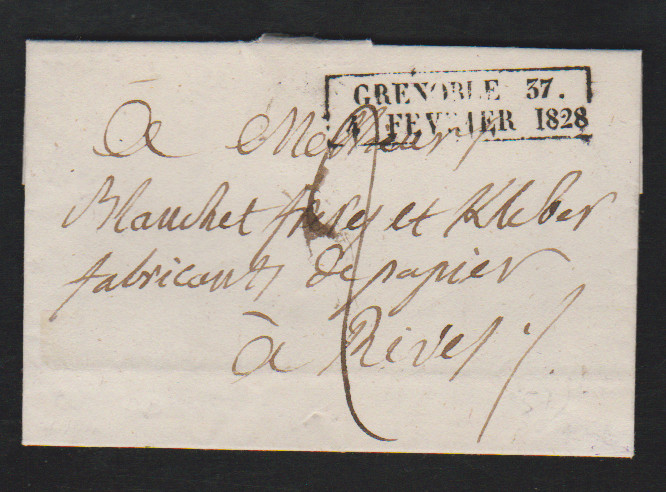 GRENOBLE 37.
FEVRIER 1828
à Messieurs
Blanchet frères et Kleber
fabricants de papier
à Rives